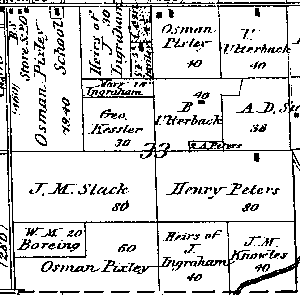 Osman
Pixley
40
U
Utterback
40
Heirs of
J
Ingraham
Osman Pixley
School
49.40
Ingraham
Geo.
Kessler
30
40
B
Utterback
A.D. St
38
A Peters
33
J. M. Slack
80
Henry Peters
80
W M 20
Boreing
60
Osman Pixley
Heirs of
J.
Ingraham
40
J. M.
Knowles
40